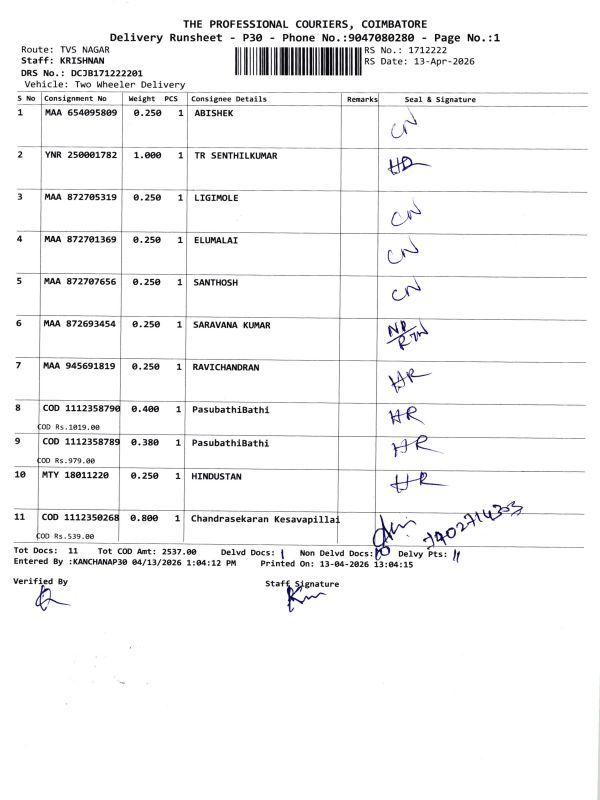 THE PROFESSIONAL COURIERS, COIMBATORE
Delivery Runsheet - P30 - Phone No.:9047080280 - Page No.:1
Route: TVS NAGAR RS No.: 1712222
Staff: KRISHNAN RS Date: 13-Apr-2026
DRS No.: DCJB171222201
Vehicle: Two Wheeler Delivery
S No Consignment No Weight PCS Consignee Details Remarks Seal & Signature
1 MAA 654095809 0.250 1 ABISHEK CN
2 YNR 250001782 1.000 1 TR SENTHILKUMAR
3 MAA 872705319 0.250 1 LIGIMOLE CN
4 MAA 872701369 0.250 1 ELUMALAI CN
5 MAA 872707656 0.250 1 SANTHOSH CN
6 MAA 872693454 0.250 1 SARAVANA KUMAR
7 MAA 945691819 0.250 1 RAVICHANDRAN HR
8 COD 1112358790 0.400 1 PasubathiBathi HR
COD Rs.1019.00
9 COD 1112358789 0.380 1 PasubathiBathi HR
COD Rs.979.00
10 MTY 18011220 0.250 1 HINDUSTAN HR
11 COD 1112350268 0.800 1 Chandrasekaran Kesavapillai
COD Rs.539.00
Tot Docs: 11 Tot COD Amt: 2537.00 Delvd Docs: 1 Non Delvd Docs: 10 Delvy Pts: 11
Entered By :KANCHANAP30 04/13/2026 1:04:12 PM Printed On: 13-04-2026 13:04:15
Verified By Staff Signature